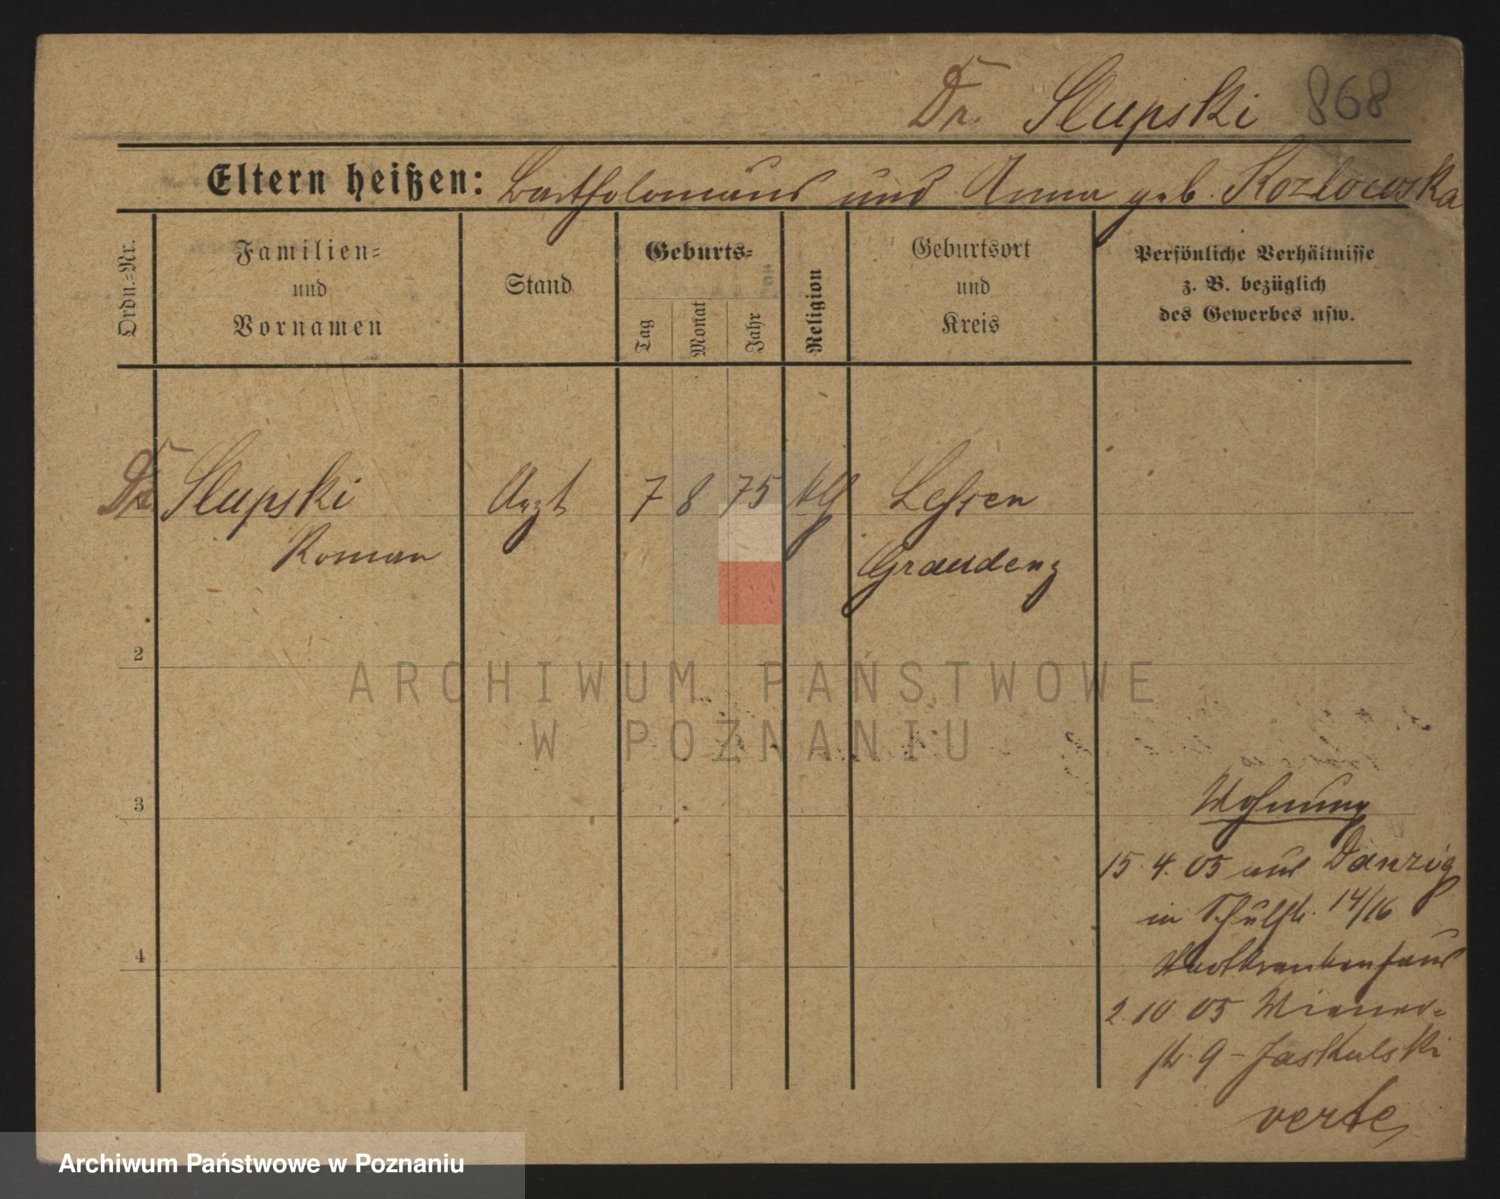 Dr. Slupski 868
Eltern heißen: Bartholomäus und Anna geb. Kozlowska
Ordn.-Nr.
Familien-
und
Vornamen
Stand
Geburts-
Tag
Monat
Jahr
Religion
Geburtsort
und
Kreis
Persönliche Verhältnisse
z. B. bezüglich
des Gewerbes usw.
Dr. Slupski Arzt 7 8 75 Lessen
Roman Graudenz
2
ARCHIWUM PAŃSTWOWE
W POZNANIU
3
Wohnung
15. 4. 05 aus Danzig
in Schulstr. 14/16
Stadtkrankenhaus
4
2. 10. 05 Wiener-
str. 9 - Jaskulski
verte
Archiwum Państwowe w Poznaniu